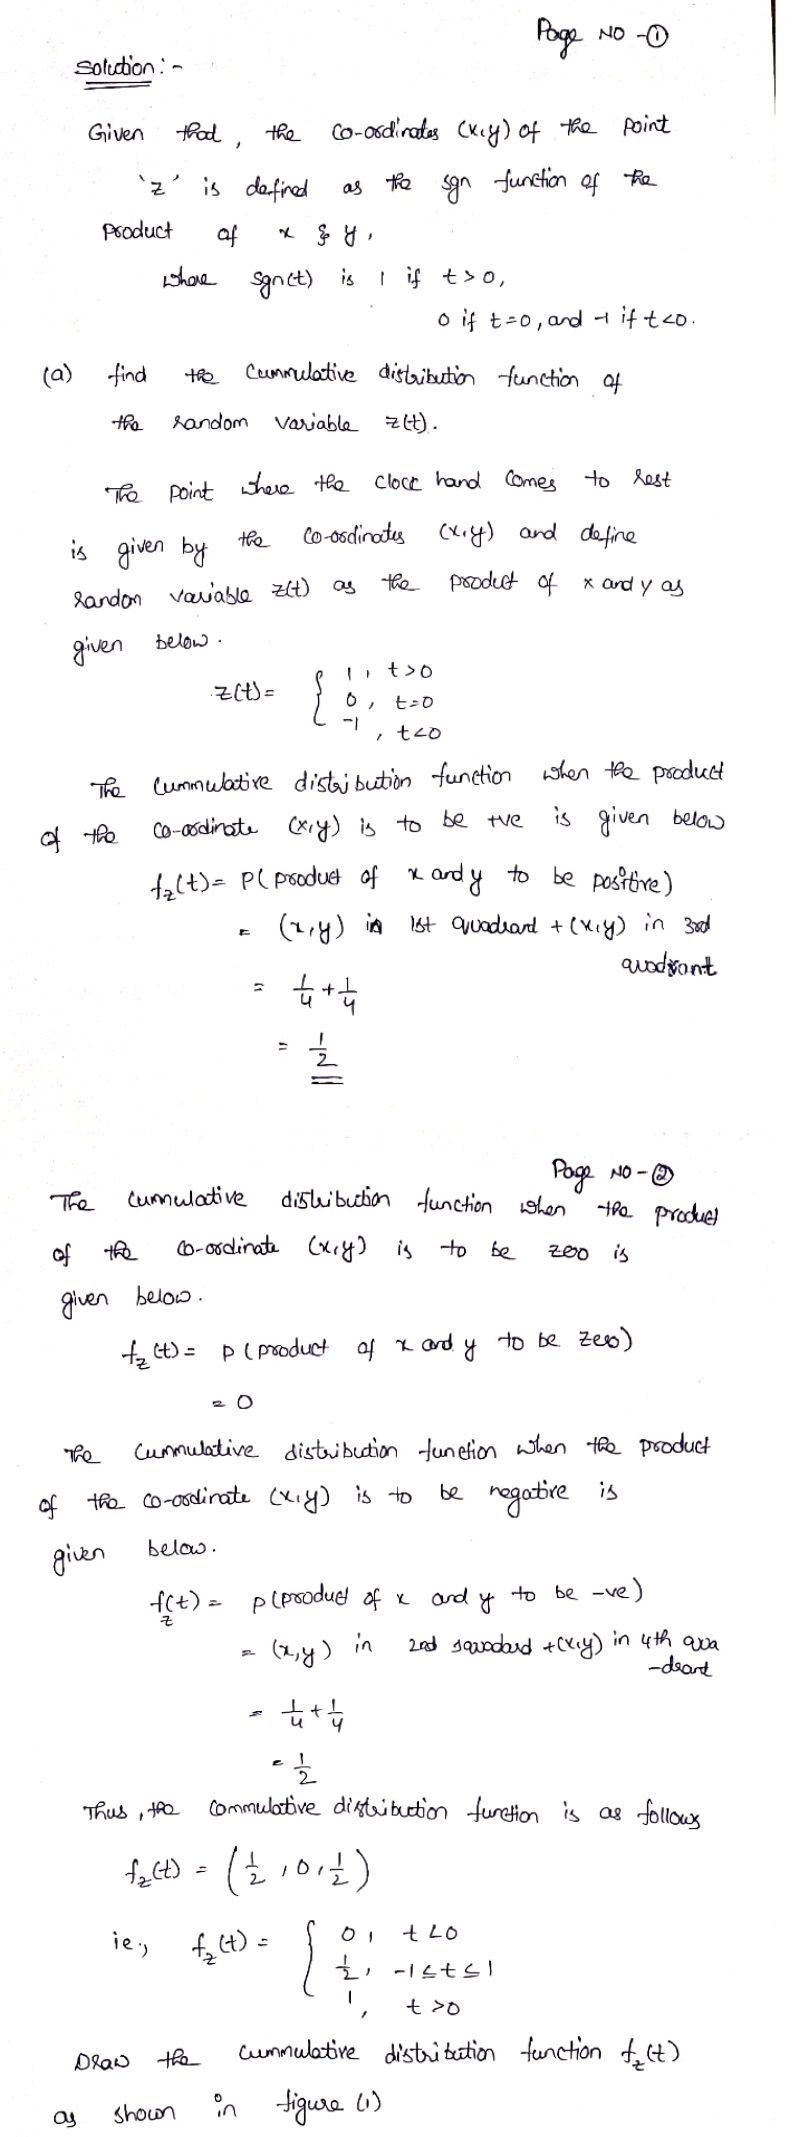 Page NO - ①
Solution :-
Given that, the co-ordinates (x,y) of the point
'z' is defined as the sgn function of the
product of x & y,
where sgn(t) is 1 if t>0,
0 if t=0, and -1 if t<0.
(a) find the Cummulative distribution function of
the random variable z(t).
The point where the clock hand comes to rest
is given by the co-ordinates (x,y) and define
random variable z(t) as the product of x and y as
given below.
z(t) = { 1, t>0
0, t=0
-1, t<0
The cummulative distribution function when the product
of the co-ordinate (x,y) is to be +ve is given below
f_z(t) = P( product of x and y to be positive)
= (x,y) in 1st quadrant + (x,y) in 3rd
quadrant
= 1/4 + 1/4
= 1/2
Page NO - ②
The cummulative distribution function when the product
of the co-ordinate (x,y) is to be zero is
given below.
f_z(t) = P ( product of x and y to be zero)
= 0
The cummulative distribution function when the product
of the co-ordinate (x,y) is to be negative is
given below.
f_z(t) = P (product of x and y to be -ve)
= (x,y) in 2nd + (x,y) in 4th qua
-drant
= 1/4 + 1/4
= 1/2
Thus, the commulative distribution function is as follows
f_z(t) = (1/2, 0, 1/2)
ie., f_z(t) = { 0, t<0
1/2, -1≤t≤1
1, t>0
Draw the cummulative distribution function f_z(t)
as shown in figure (1)